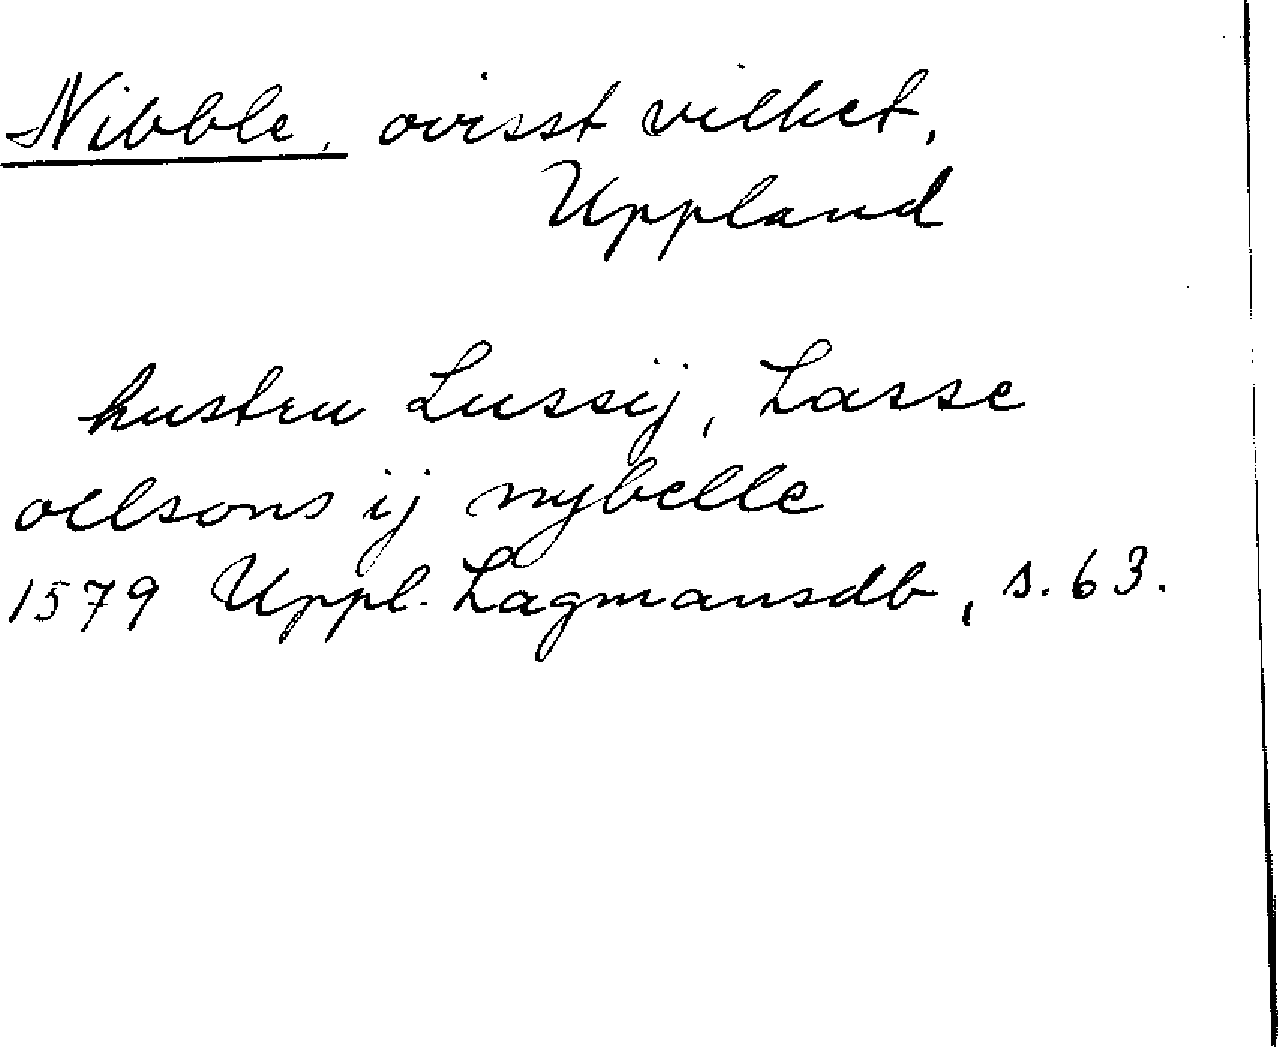 Nibble, ovisst vilket,
Uppland
hustru Lussij, Lasse
oelsons ij nybelle
1579 Uppl. Lagmansdb, s. 63.